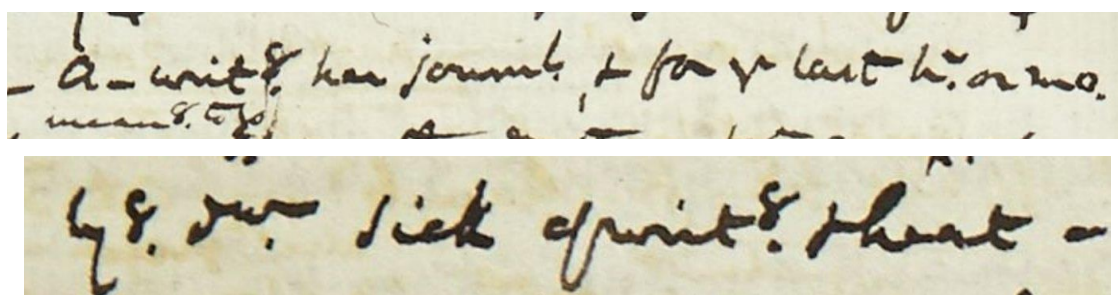 - A- writg. her journl., & for ye last hr. or mo.
meang. to go
lyg. dwn. sick of writg. & heat -